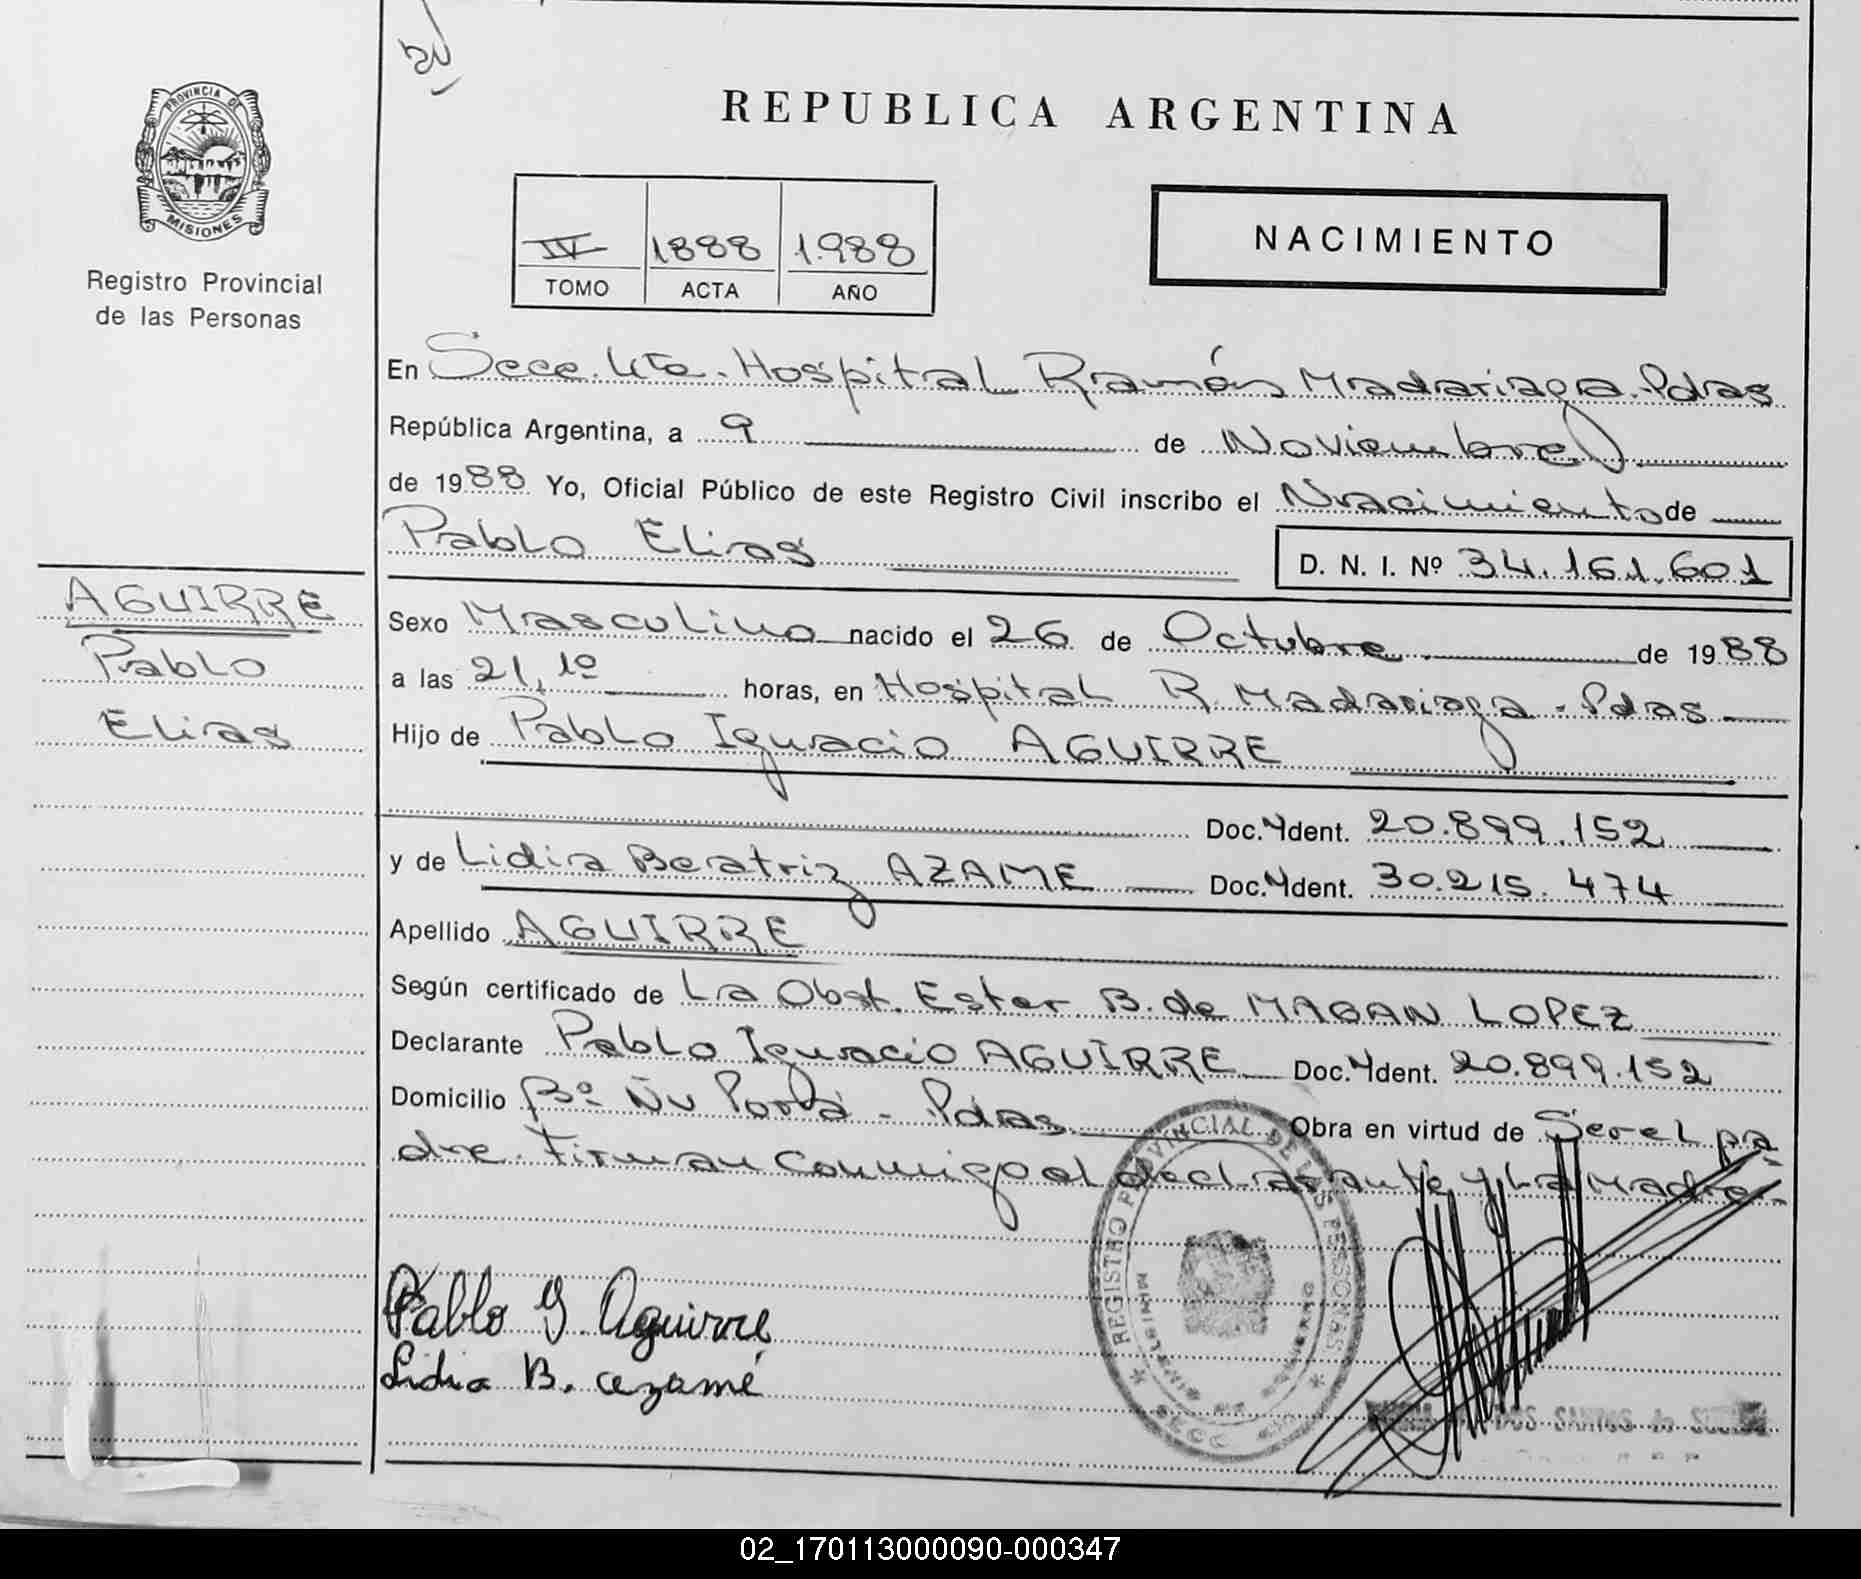 PROVINCIA DE
MISIONES
Registro Provincial
de las Personas
REPUBLICA ARGENTINA
IV 1888 1.988
TOMO ACTA AÑO
NACIMIENTO
En Secc. 4ta. Hospital Ramón Madariaga. Pdas
República Argentina, a 9 de Noviembre
de 1988 Yo, Oficial Público de este Registro Civil inscribo el Nacimiento de
Pablo Elias
D. N. I. Nº 34.161.601
AGUIRRE
Pablo
Elias
Sexo Masculino nacido el 26 de Octubre de 1988
a las 21,10 horas, en Hospital R. Madariaga - Pdas
Hijo de Pablo Ignacio AGUIRRE
Doc. Ident. 20.899.152
y de Lidia Beatriz AZAME Doc. Ident. 30.215.474
Apellido AGUIRRE
Según certificado de La Obst. Ester B. de MAGAN LOPEZ
Declarante Pablo Ignacio AGUIRRE Doc. Ident. 20.899.152
Domicilio Bº Ñu Porá - Pdas Obra en virtud de Ser el pa-
dre. Firman conmigo el declarante y La Madre.
REGISTRO PROVINCIAL DE LAS PERSONAS
Pablo I Aguirre
Lidia B. Azamé
DOS SANTOS de
02_170113000090-000347